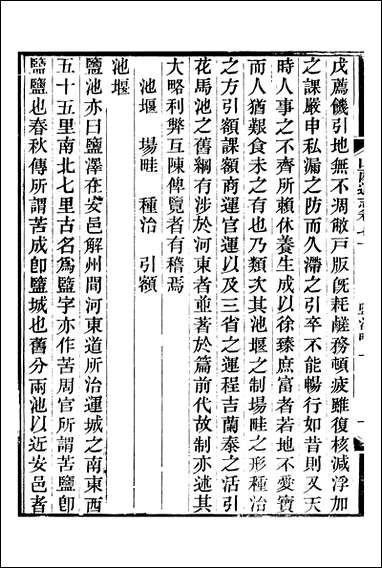 戊薦饑引地無不凋敝戶版旣耗鹺務頓疲雖復核減浮加
之課嚴申私漏之防而久滯之引卒不能暢行如昔則又天
時人事之不齊所賴休養生成以徐臻庶富者若地不愛寶
而人猶艱食未之有也乃類次其池堰之制場畦之形種治
之方引額課額商運官運以及三省之運程吉蘭泰之活引
花馬池之舊綱有涉於河東者並著於篇前代故制亦述其
大略利弊互陳俾覽者有稽焉
池堰　場畦　種治　引額
池堰
鹽池亦曰鹽澤在安邑解州間河東道所治運城之南東西
五十五里南北七里古名為鹽字亦作苦周官所謂苦鹽卽
鹽鹽也春秋傳所謂苦成卽鹽城也舊分兩池以近安邑者